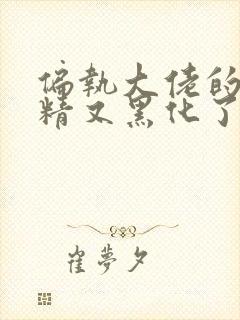 偏執大佬的
精又黑化了
崔夢夕